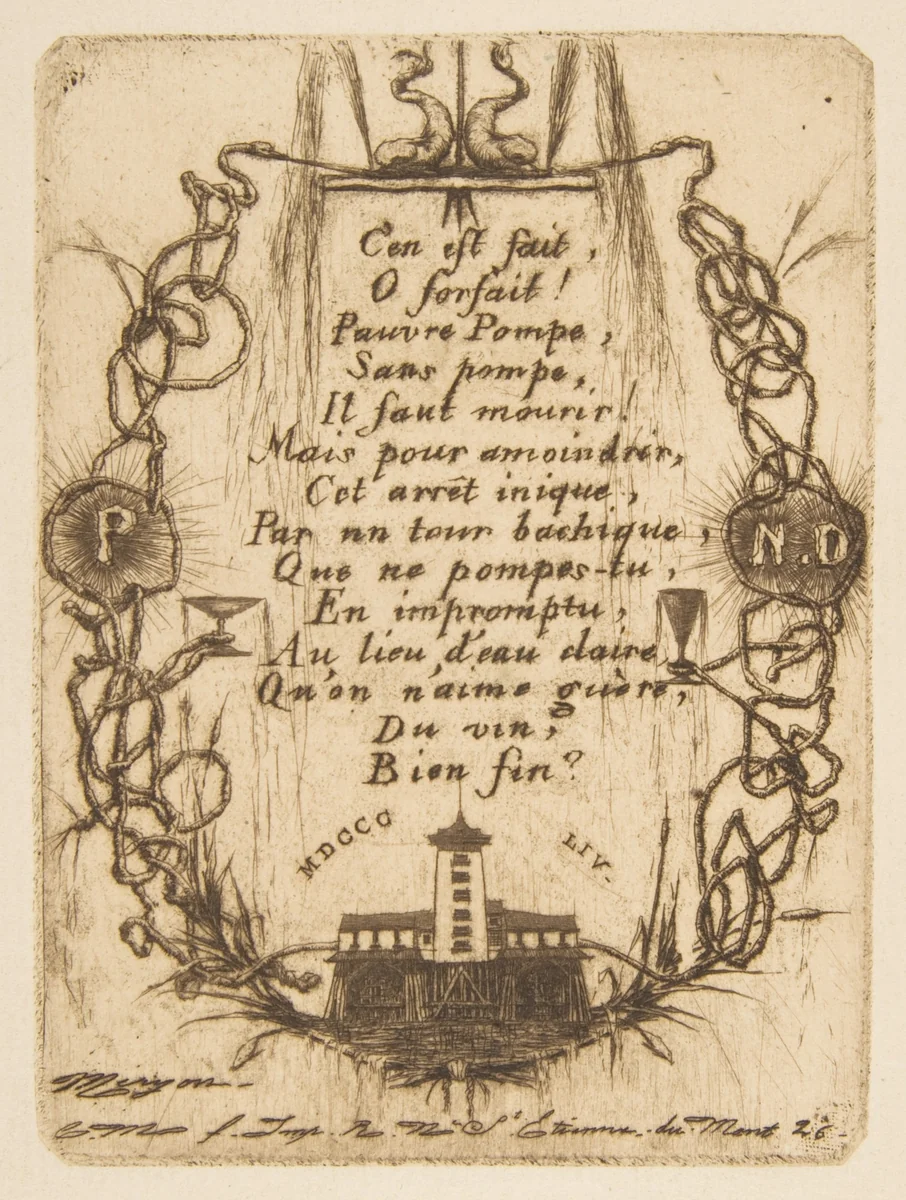 C'en est fait,
O forfait!
Pauvre Pompe,
Sans pompe,
Il faut mourir!
Mais pour amoindrir,
Cet arrêt inique,
Par un tour bachique,
P
N.D
Que ne pompes-tu,
En impromptu,
Au lieu d'eau claire
Qu'on n'aime guère,
Du vin,
Bien fin?
MDCCC LIV.
Meryon
C.M f. Imp. R. Nve St Etienne-du-Mont 26.